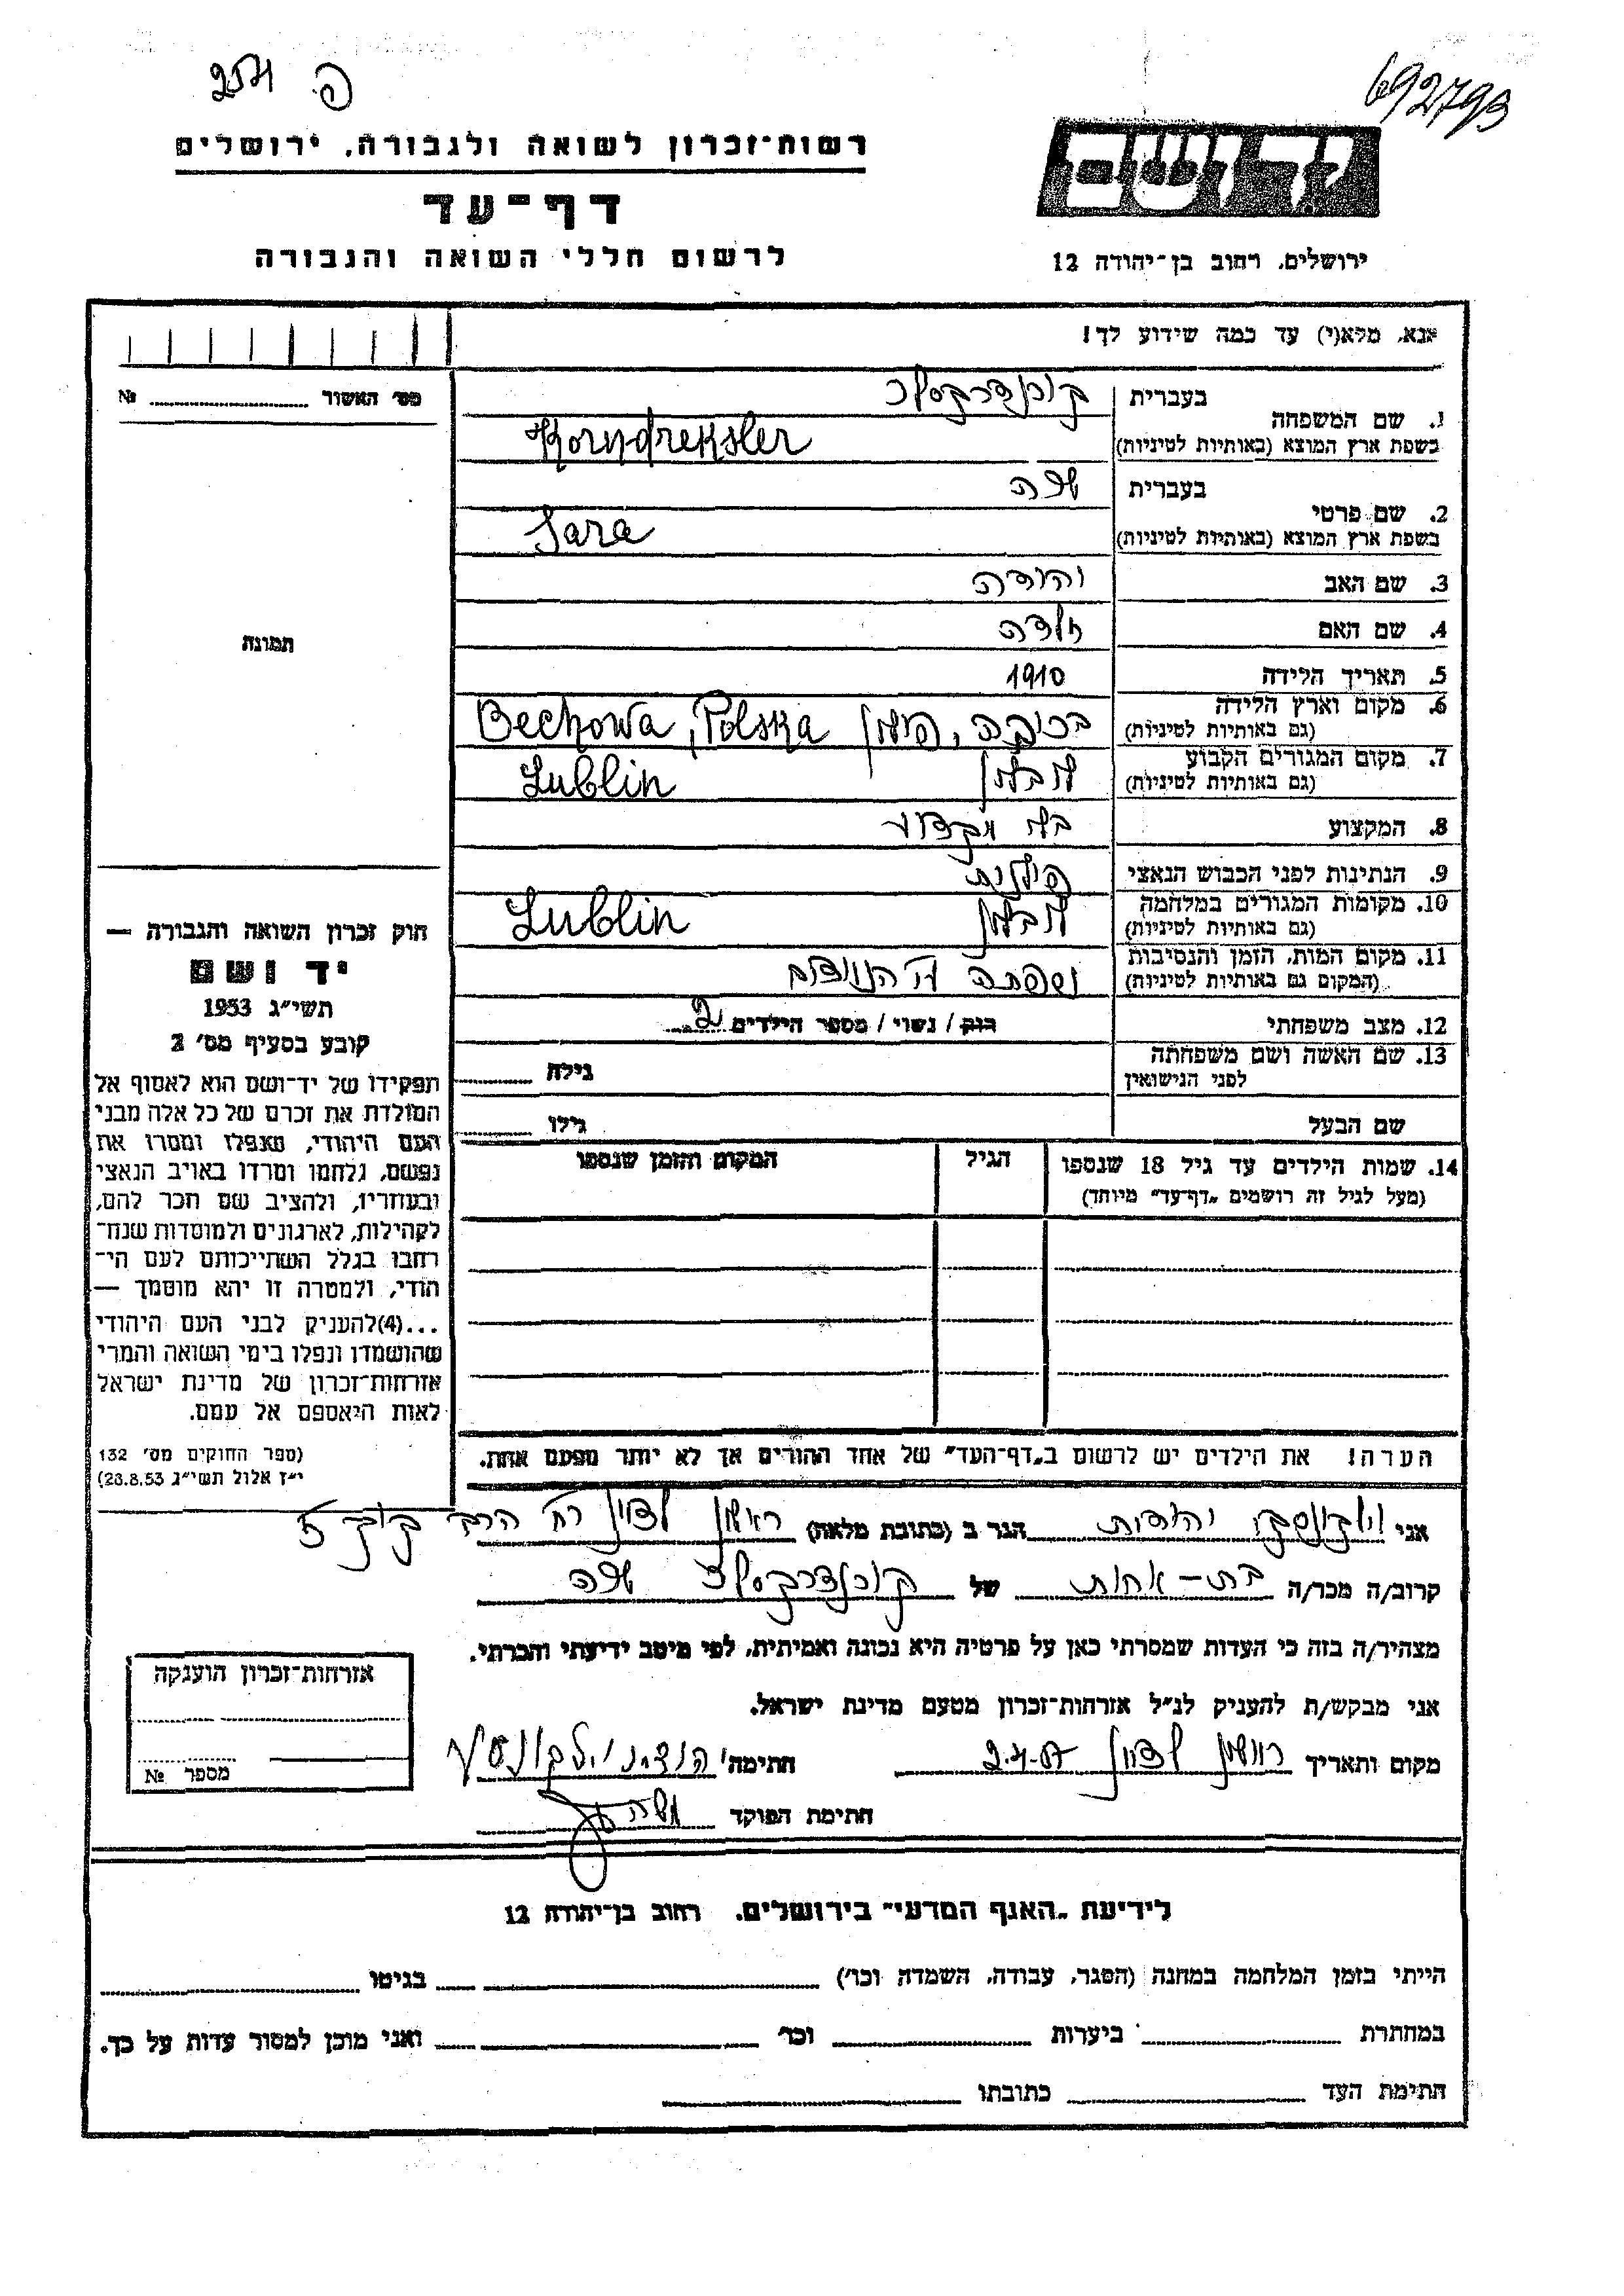 692793
פ. 2571
רשות-זכרון לשואה ולגבורה, ירושלים
דף-עד
לרשום חללי השואה והגבורה
יד ושם
ירושלים, רחוב בן-יהודה 12
אנא, מלא(י) עד כמה שידוע לך!
מס' האשור № 
1. שם המשפחה
בעברית קורנדרקסלר
בשפת ארץ המוצא (באותיות לטיניות) Korndreksler
2. שם פרטי
בעברית שרה
בשפת ארץ המוצא (באותיות לטיניות) Sara
3. שם האב יהודה
4. שם האם
תמונה
5. תאריך הלידה 1910
6. מקום וארץ הלידה
(גם באותיות לטיניות) פולין Bechowa, Polska
7. מקום המגורים הקבוע
(גם באותיות לטיניות) לובלין Lublin
8. המקצוע
9. הנתינות לפני הכבוש הנאצי פולנית
10. מקומות המגורים במלחמה
(גם באותיות לטיניות) לובלין Lublin
11. מקום המות, הזמן והנסיבות
(המקום גם באותיות לטיניות)
12. מצב משפחתי רוק / נשוי / מספר הילדים 2
13. שם האשה ושם משפחתה
לפני הנישואין גילה
שם הבעל גילו
14. שמות הילדים עד גיל 18 שנספו
(מעל לגיל זה רושמים "דף-עד" מיוחד)
הגיל
המקום והזמן שנספו
הערה! את הילדים יש לרשום ב"דף-העד" של אחד ההורים אך לא יותר מפעם אחת.
חוק זכרון השואה והגבורה —
יד ושם
תשי"ג 1953
קובע בסעיף מס' 2
תפקידו של יד-ושם הוא לאסוף אל
המולדת את זכרם של כל אלה מבני
העם היהודי, שנפלו ומסרו את
נפשם, נלחמו ומרדו באויב הנאצי
ובעוזריו, ולהציב שם וזכר להם,
לקהילות, לארגונים ולמוסדות שנח-
רבו בגלל השתייכותם לעם הי-
הודי, ולמטרה זו יהא מוסמך —
...(4)להעניק לבני העם היהודי
שהושמדו ונפלו בימי השואה והמרי
אזרחות-זכרון של מדינת ישראל
לאות היאספם אל עמם.
(ספר החוקים מס' 132
י"ז אלול תשי"ג 28.8.53)
אני יהודית הגר ב (כתובת מלאה) ראשון לציון רח' הרב קוק 5
קרוב/ה מכר/ה בת-אחות של קורנדרקסלר שרה
מצהיר/ה בזה כי העדות שמסרתי כאן על פרטיה היא נכונה ואמיתית, לפי מיטב ידיעתי והכרתי.
אני מבקש/ת להעניק לנ"ל אזרחות-זכרון מטעם מדינת ישראל.
מקום ותאריך ראשון לציון חתימה
חתימת הפוקד
אזרחות-זכרון הוענקה
מספר №
לידיעת "האגף המדעי" בירושלים, רחוב בן-יהודה 12
הייתי בזמן המלחמה במחנה (הסגר, עבודה, השמדה וכו') בגיטו
במחתרת ביערות וכו' ואני מוכן למסור עדות על כך.
חתימת העד כתובתו